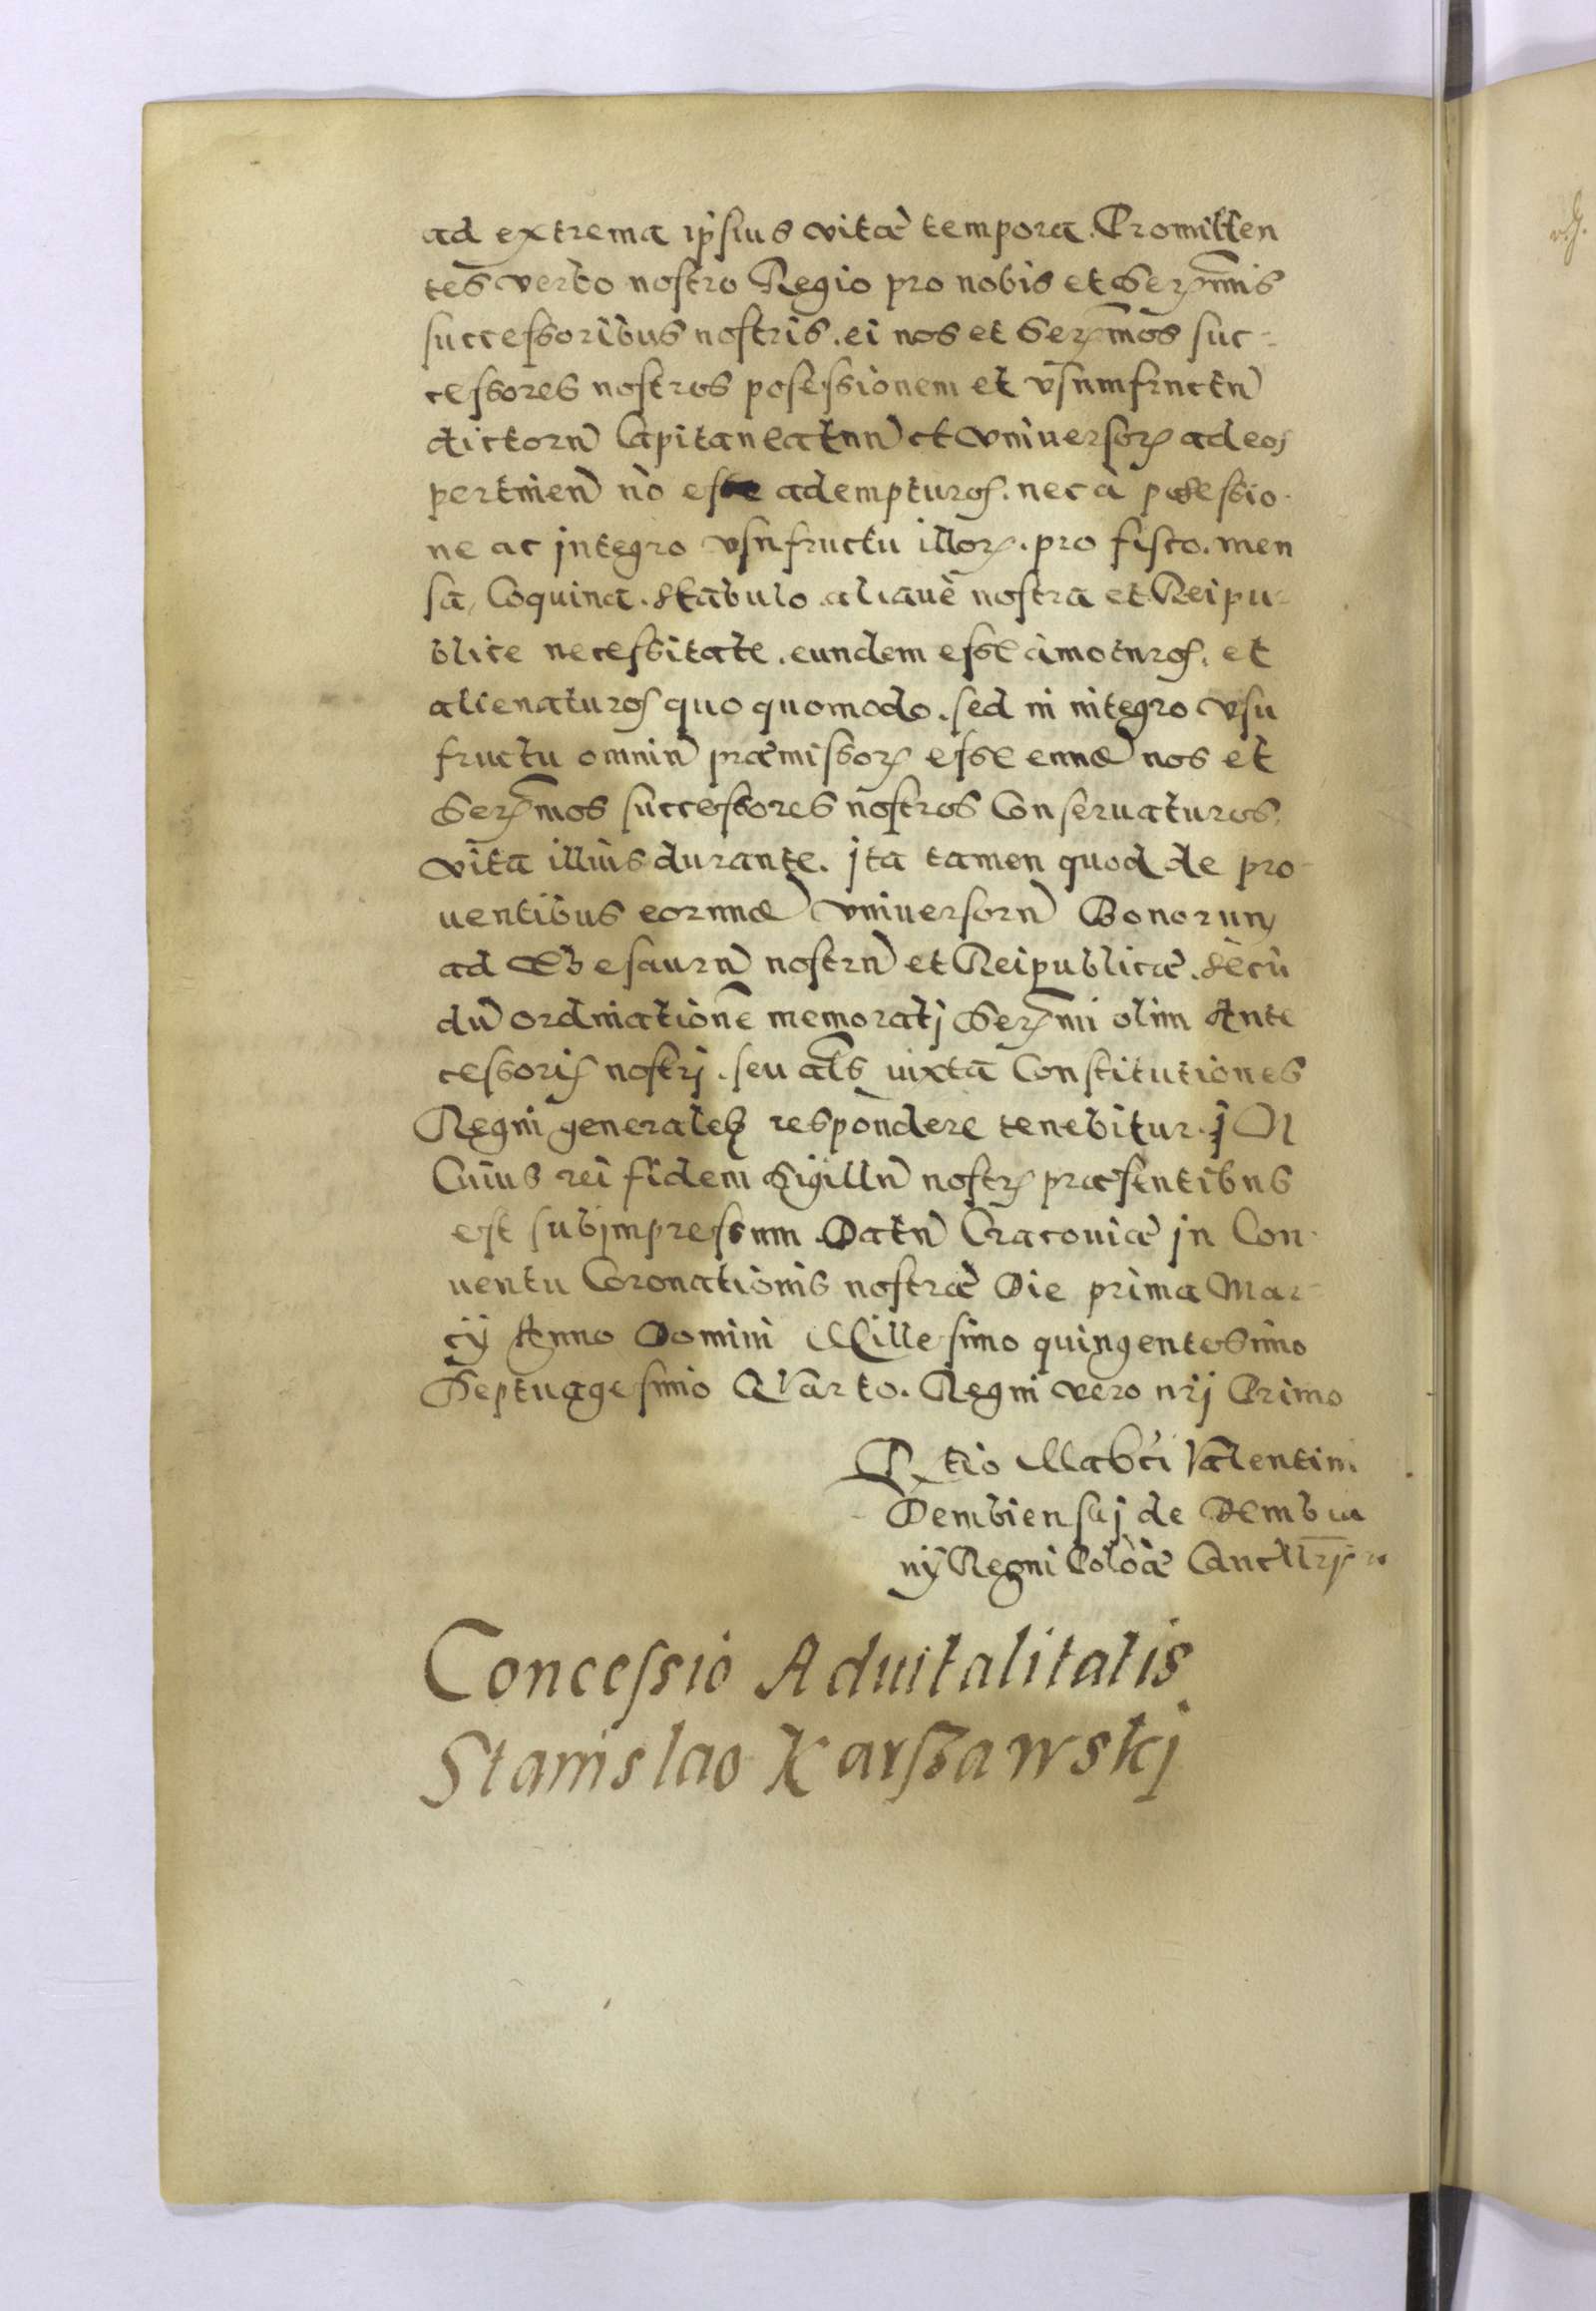 ad extrema ipsius vitæ tempora. Promitten
tes verbo nostro Regio pro nobis et Serꝫmis
successoribus nostris. ei nos et Serꝫmos suc-
cessores nostros posessionem et vsumfructu̅
dictoru̅ Capitaneatuu̅ et vniuersorꝫ ad eos
pertinen̅ nò esse adempturos. nec à posessio-
ne ac jntegro vsufructu illorꝫ. pro fisco. men
sa, Coquina. stabulo aliaue nostra et Reipu-
blice necessitate. eundem esse àmoturos. et
alienaturos quo quomodo. sed in integro vsu
fructu omniu̅ præmissorꝫ esse eum nos et
Serꝫmos successores nostros Conseruaturos.
vita illius durante. jta tamen quod de pro-
uentibus eorum vniuersoru̅ Bonorum
ad Thesauru̅ nostru̅ et Reipublicæ. secu̅
du̅ ordinatione̅ memoratj Serꝫmi olim Ante
cessoris nostrj. seu al̅s iuxta Constitutiones
Regni generales respondere tenebitur. jN
Cuius rei fidem Sigillu̅ nostrꝫ præsentibus
est subjmpressum. Datu̅ Cracouiæ jn Con-
uentu Coronationis nostræ Die prima Mar-
cij Anno Domini Millesimo quingentesimo
Septuagesimo QVarto. Regni vero nrj Primo
Rtio Mabci Valentini
Dembienskj de Dembia
nij Regni Poloæ Cancll̅rj
Concessio Aduitalitatis
Stanislao Karszawskj